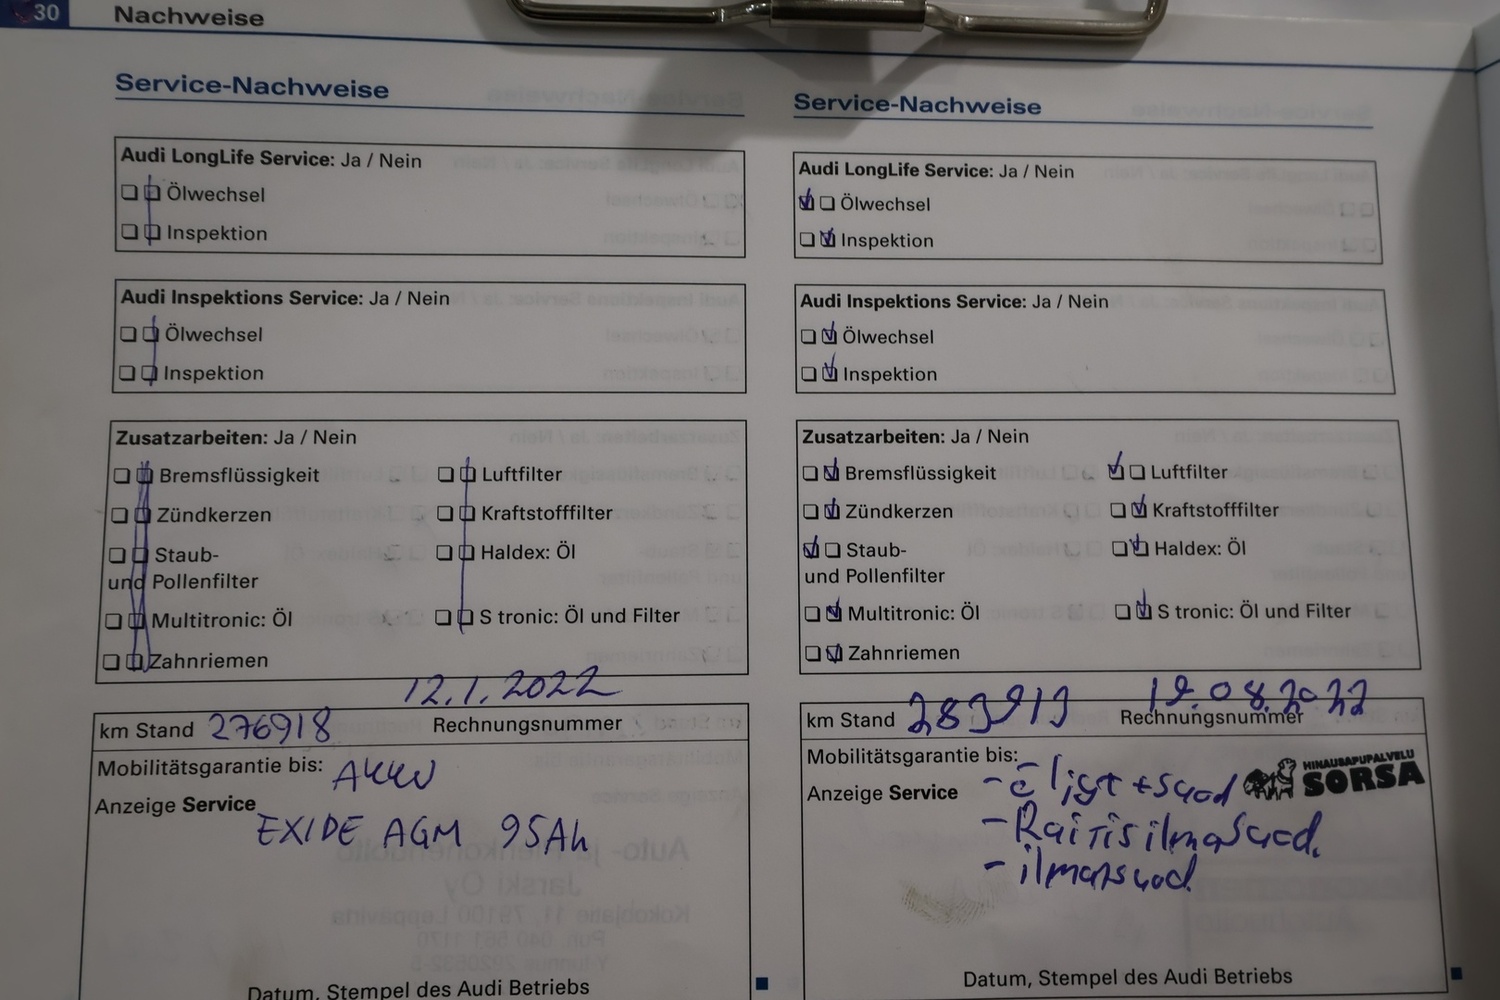 30 Nachweise
Service-Nachweise
Audi LongLife Service: Ja / Nein
Ölwechsel
Inspektion
Audi Inspektions Service: Ja / Nein
Ölwechsel
Inspektion
Zusatzarbeiten: Ja / Nein
Bremsflüssigkeit
Luftfilter
Zündkerzen
Kraftstofffilter
Staub-
und Pollenfilter
Haldex: Öl
Multitronic: Öl
S tronic: Öl und Filter
Zahnriemen
12.1.2022
km Stand 276918 Rechnungsnummer
Mobilitätsgarantie bis: AKKU
Anzeige Service
EXIDE AGM 95Ah
Datum, Stempel des Audi Betriebs
Service-Nachweise
Audi LongLife Service: Ja / Nein
Ölwechsel
Inspektion
Audi Inspektions Service: Ja / Nein
Ölwechsel
Inspektion
Zusatzarbeiten: Ja / Nein
Bremsflüssigkeit
Luftfilter
Zündkerzen
Kraftstofffilter
Staub-
und Pollenfilter
Haldex: Öl
Multitronic: Öl
S tronic: Öl und Filter
Zahnriemen
km Stand Rechnungsnummer
Mobilitätsgarantie bis:
Anzeige Service
HINAUSAPUPALVELU
SORSA
- Raitisilmasuod.
- ilmansuod
Datum, Stempel des Audi Betriebs